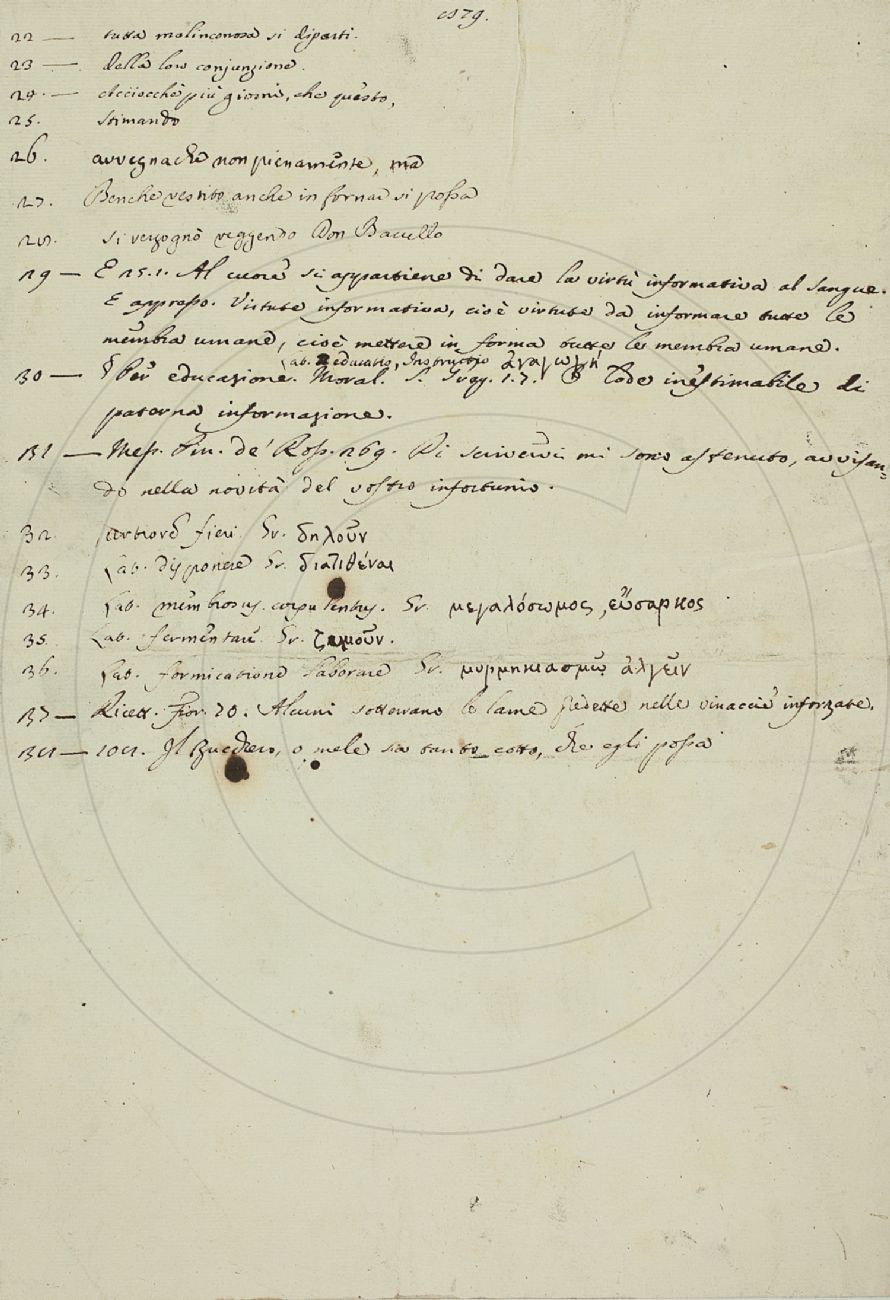 1579.
22 — tutta malinconosa si dipartì.
23 — della loro conjunzione.
24. — Acciocchè più giorni, che questo,
25. stimando
26. avvegnachè non pienamente, ma
27. Benche vestito anche in fornac si possa
28. si vergognò veggendo Don Bacello
29 — E 25.1. Al cuore si appartiene di dare la virtù informativa al sangue.
E appresso. Virtute informativa, cioè virtute da informare tutte le
membra umane, cioè mettere in forma tutte le membra umane.
Lat. educatio, Instructio ἀγαγωγή
30 — § Per educazione. Moral. S. Greg. 1.7. Lode inestimabile di
paterna informazione.
31 — Mess. Cin. de' Ross. 269. Di scrivervi mi sono astenuto, avvisan=
do nella novità del vostro infortunio.
32. fieri Gr. δηλοῦν
33. Lat. disponere Gr. διατιθέναι
34. Lat. membrosus, corpulentus. Gr. μεγαλόσωμος, εὔσαρκος
35. Lat. fermentare Gr. ζυμοῦν.
36. Lat. formicatione laborare Gr. μυρμηκιασμῷ ἀλγεῖν
37 — Ricett. Fior. 70. Alcuni sotterrano le lame fredette nelle vinaccie inforzate.
38 — 101. Il zucchero, o mele sia tanto cotto, che egli possa